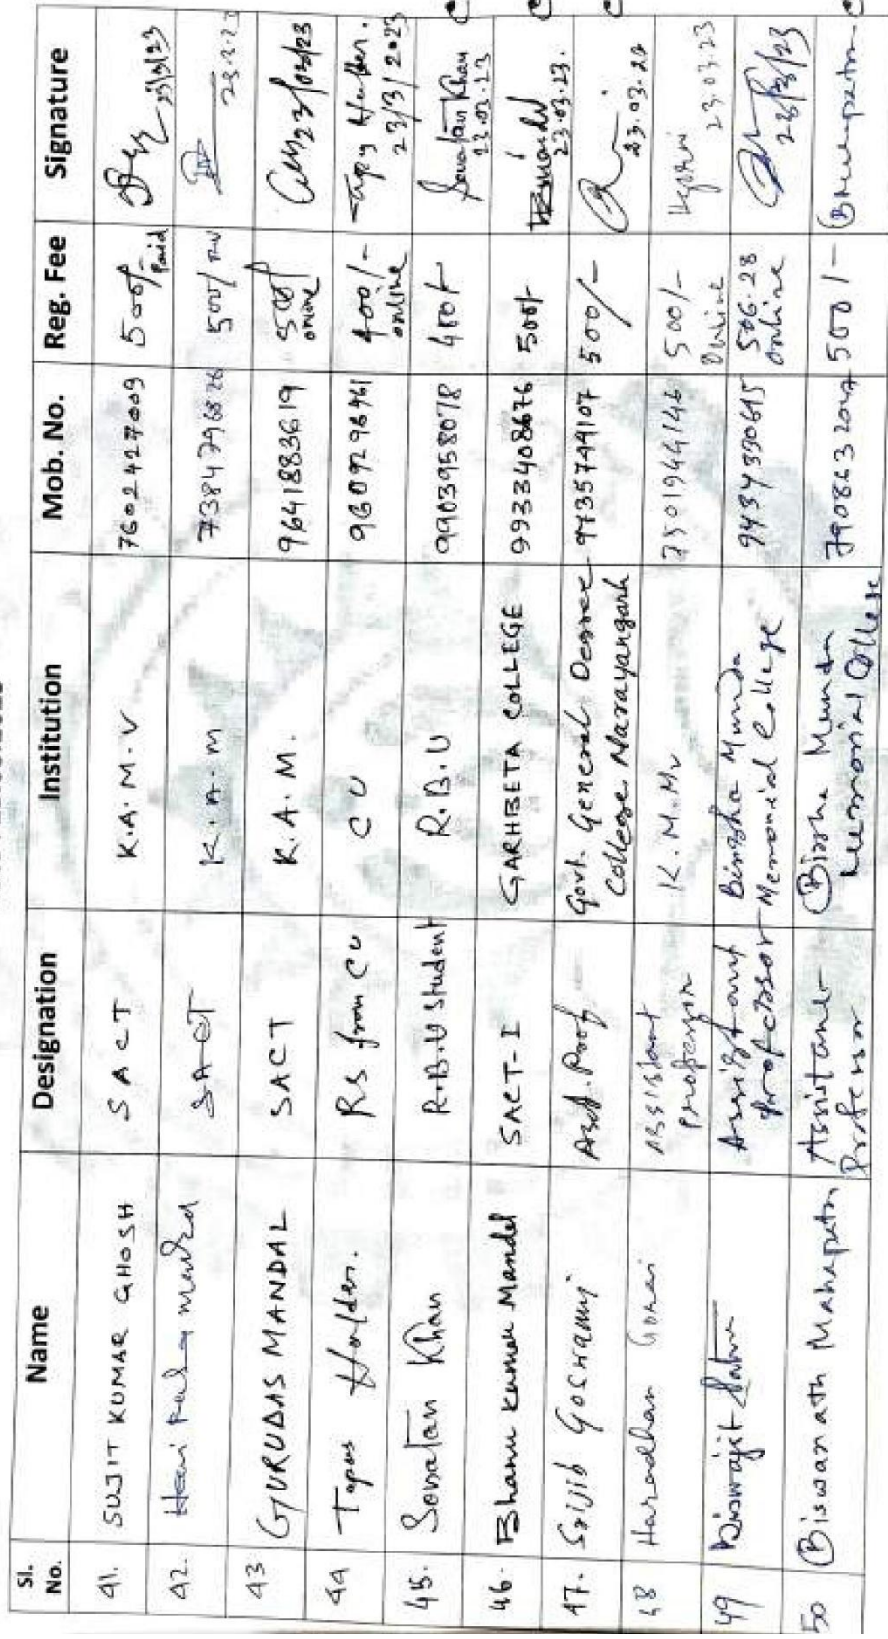 Sl. No. Name Designation Institution Mob. No. Reg. Fee Signature
41. SUJIT KUMAR GHOSH SACT K.A.M.V 7602427009 500/- Paid 23/3/23
42. SACT K.A.M 7384796876 500/-
43 GURUDAS MANDAL SACT K.A.M. 9641883619 500/- online 23/03/23
44 Tapas Halder. RS from CU CU 9609296961 400/- online Tapas Halder. 23/3/2023
45. Sonatan Khan R.B.U Student R.B.U 9903958078 400/- Sonatan Khan 23.03.23
46. Bhanu Kumar Mandal SACT-I GARHBETA COLLEGE 9933408676 500/- 23.03.23.
47. Srijib Goswami Asst. Prof Govt. General Degree College Narayangarh 9735744107 500/- 23.03.23
48 Haradhan Gorai Assistant Professor K.M.Mv 500/- Online Hgorai 23.03.23
49 Biswajit Assistant Professor Birsha Munda Memorial College 506.28 online 23/3/23
50 Biswanath Mahapatra Assistant Professor Birsha Munda Memorial College 500/-